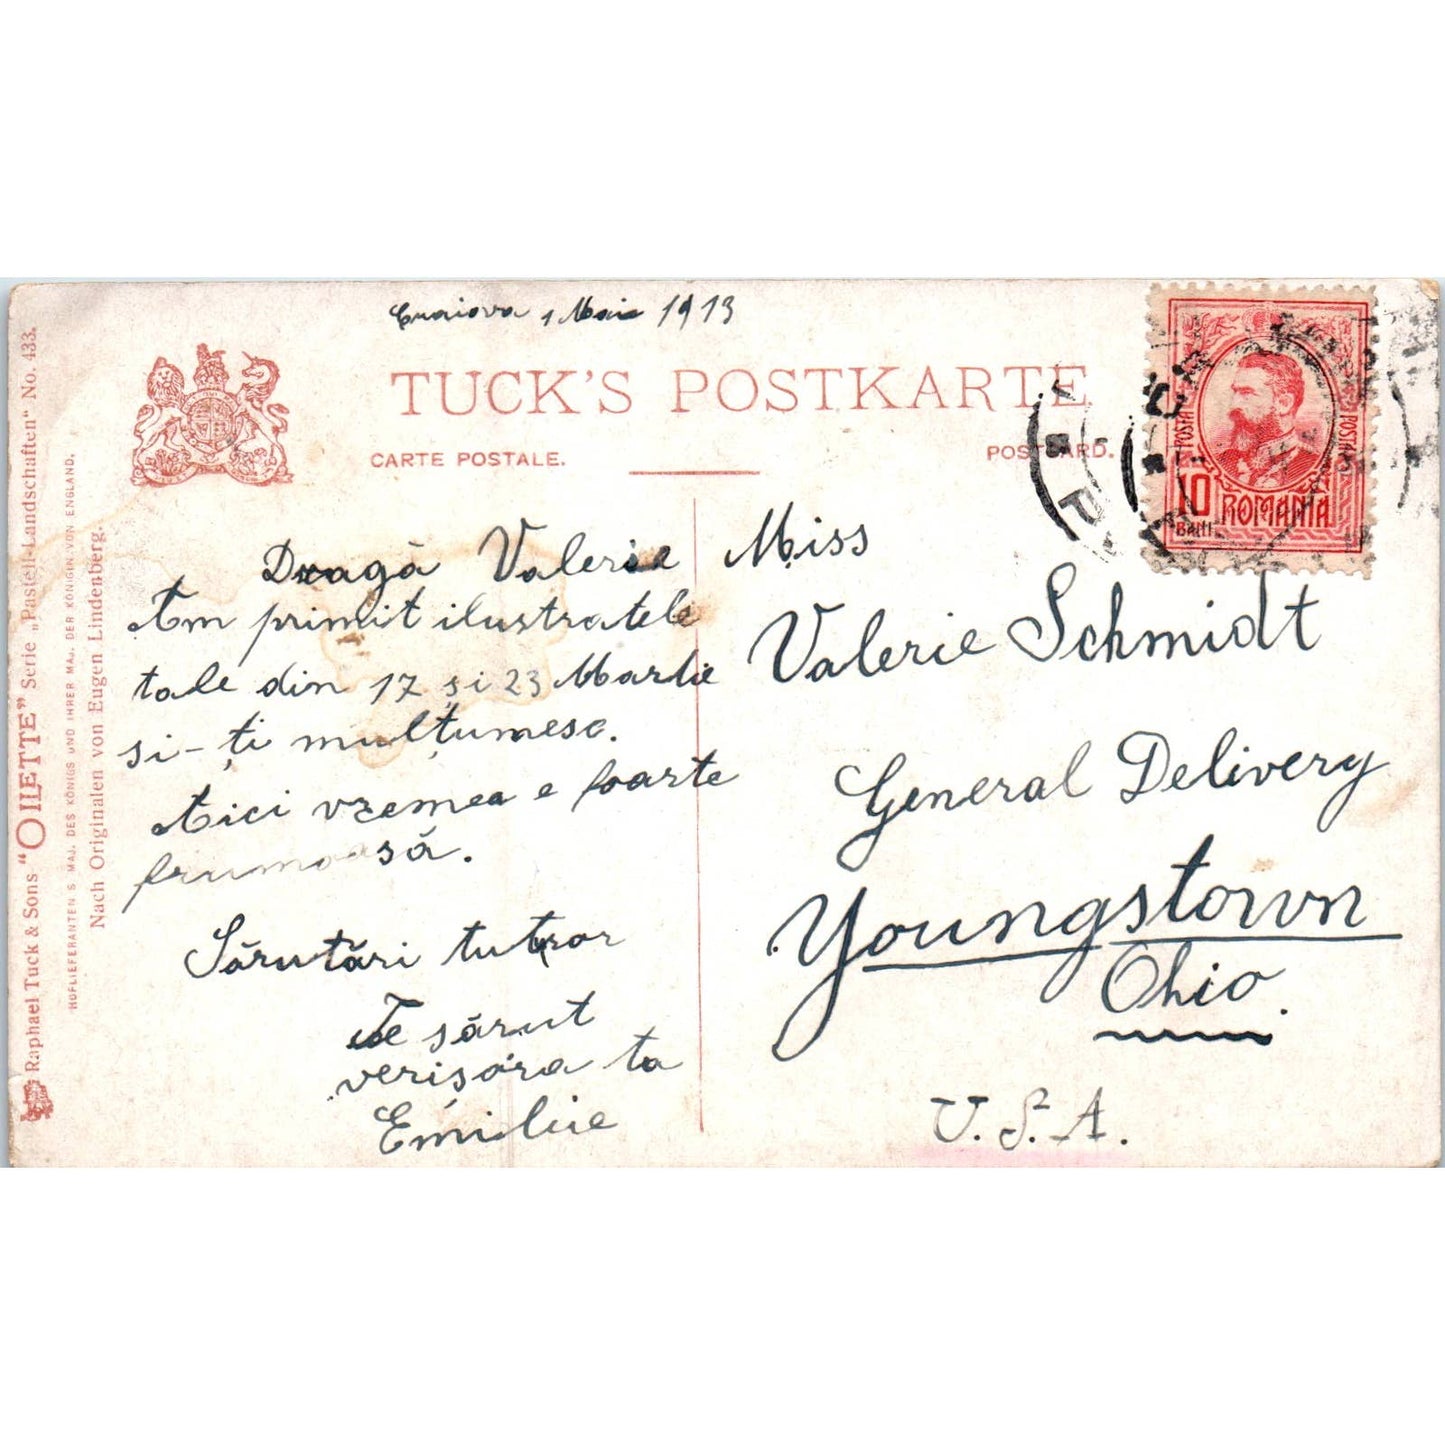 Craiova 1 Mai 1913
TUCK'S POSTKARTE
CARTE POSTALE.
POSTCARD.
Dragă Valerie
Am primit ilustratele
tale din 17 și 23 Martie
si-ți mulțumesc.
Aici vremea e foarte
frumoasă.
Sărutări tutror
Te sărut
verișoara ta
Emilie
Miss
Valerie Schmidt
General Delivery
Youngstown
Ohio.
U.S.A.
POSTA
10
BANI
ROMANIA
Raphael Tuck & Sons "OILETTE" Serie „Pastell-Landschaften“ No. 433.
HOFLIEFERANTEN S. MAJ. DES KÖNIGS UND IHRER MAJ. DER KÖNIGIN VON ENGLAND.
Nach Originalen von Eugen Lindenberg.